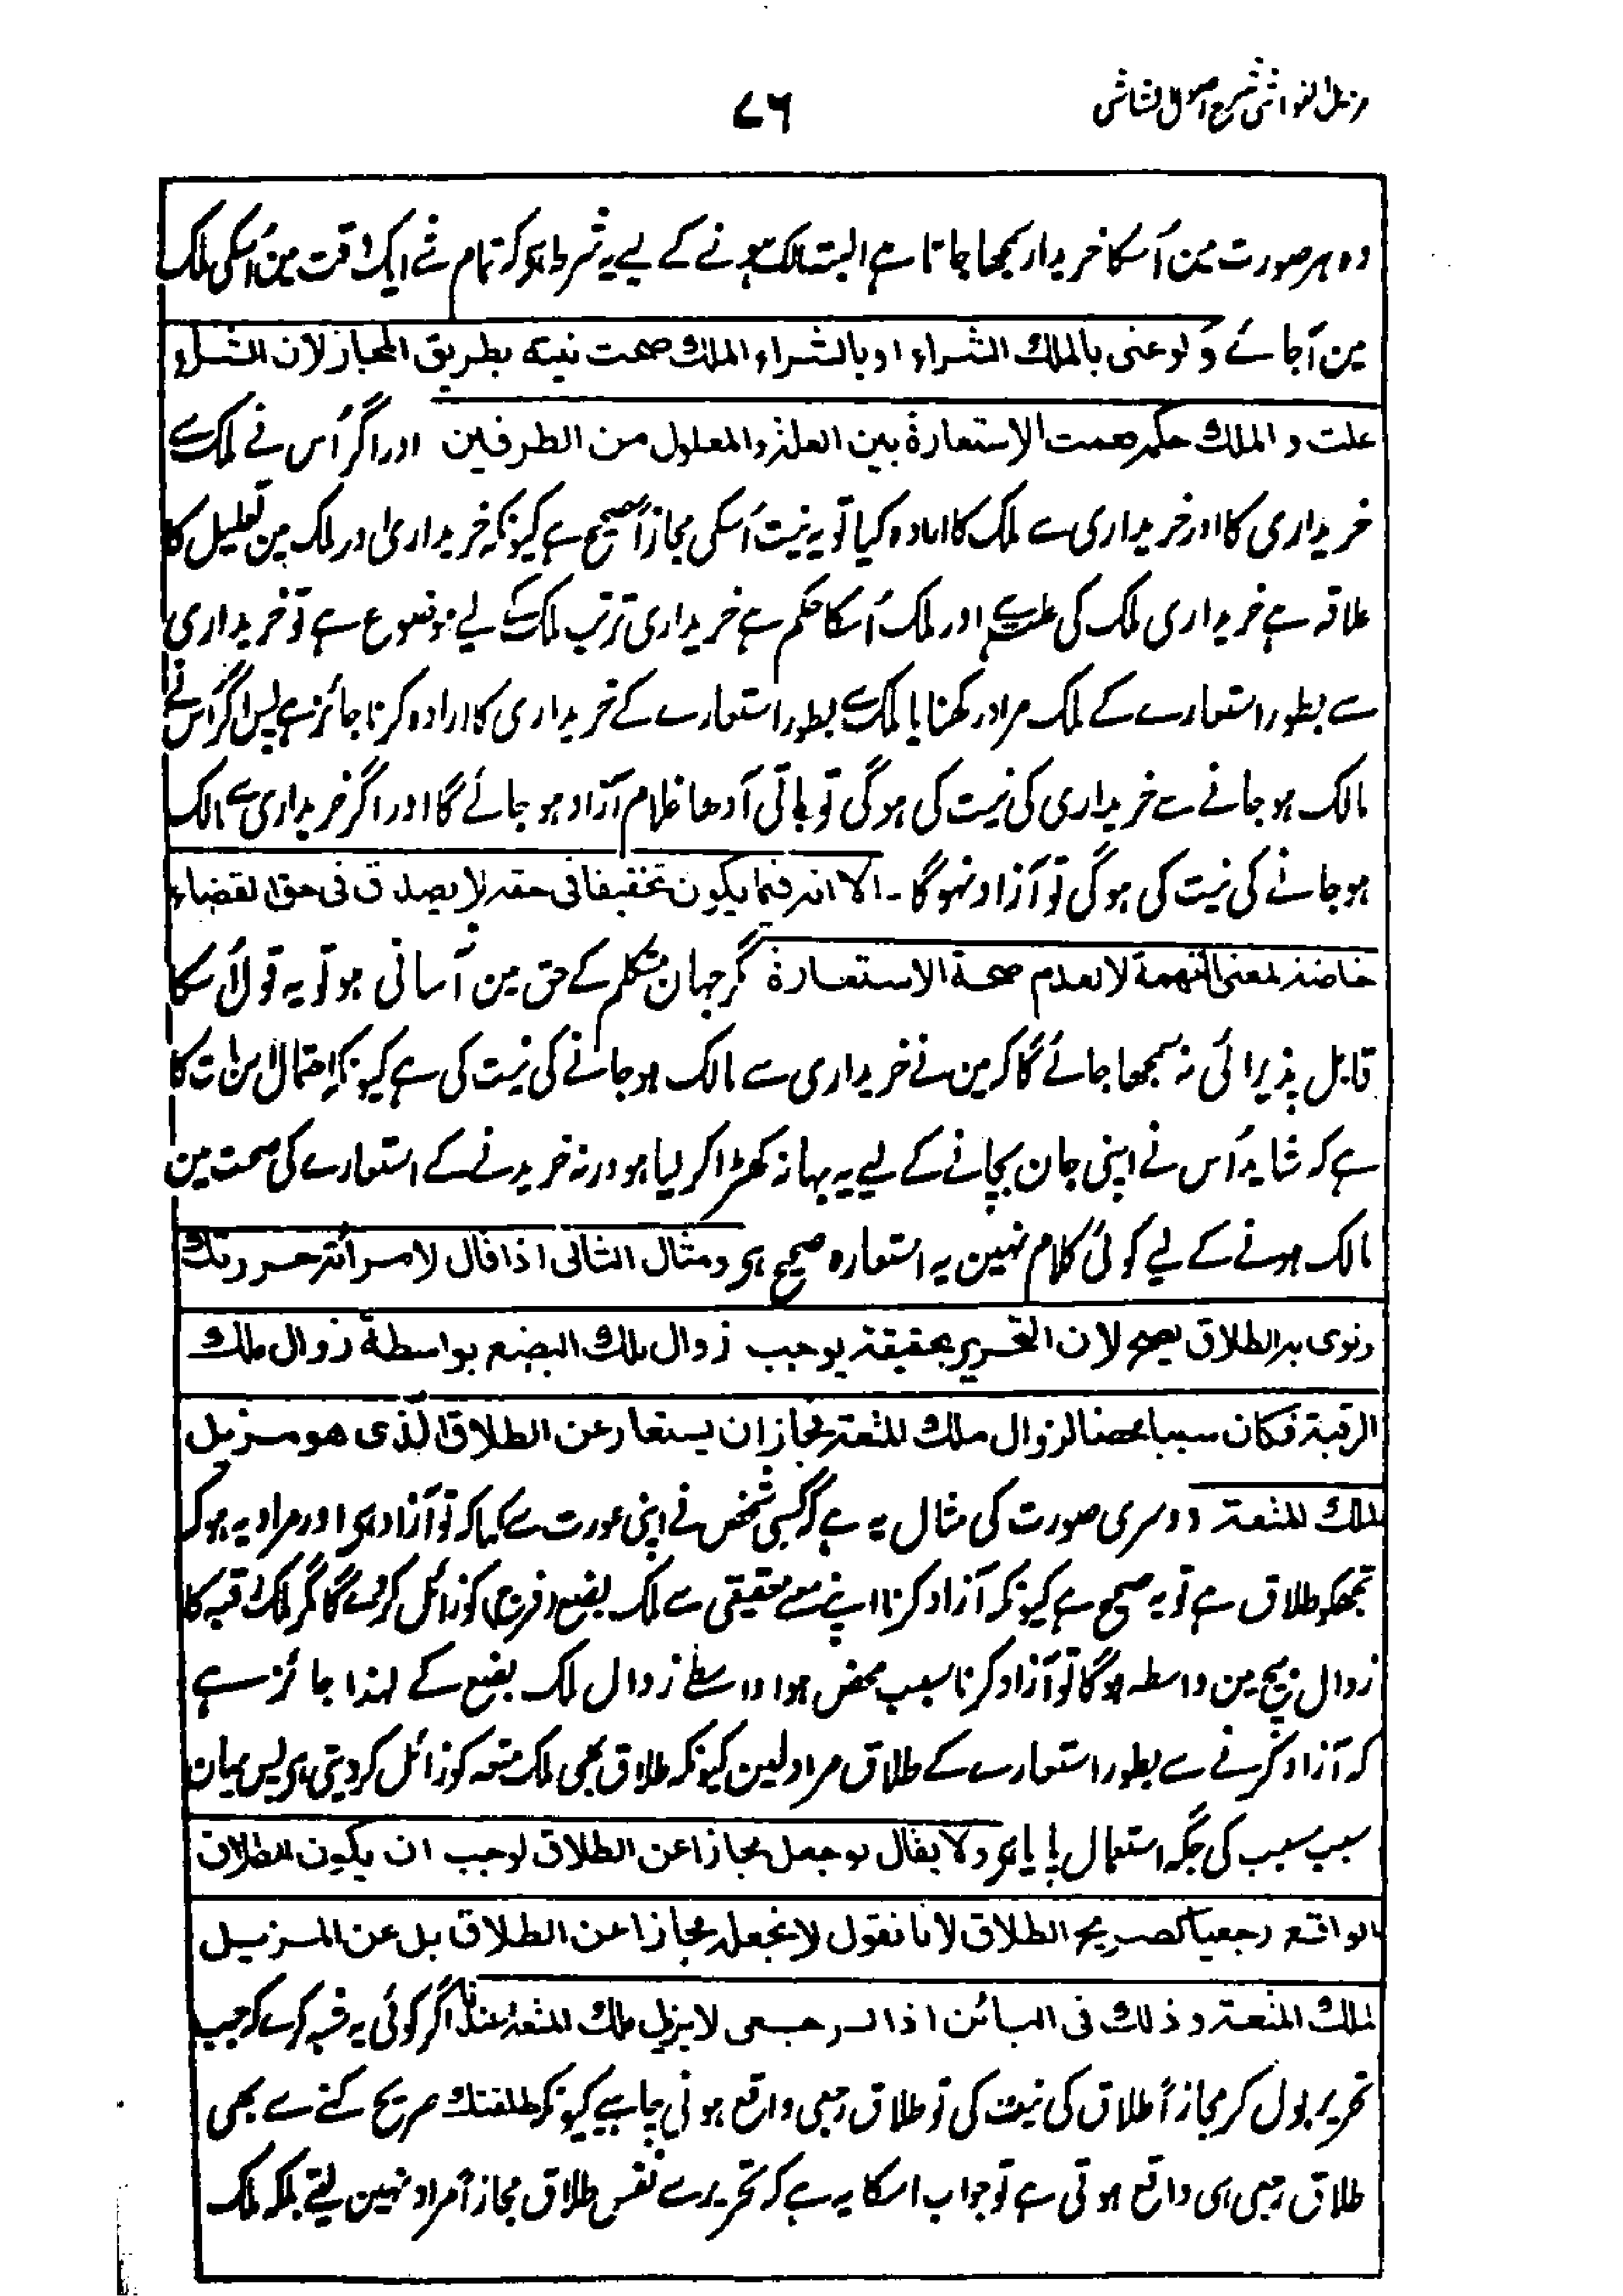 مزیل الغواشی شرح اصول الشاشی
۷۶
وہ ہر صورت مین اُسکا خریدار سمجھا جاتا ہے البتہ مالک ہونے کے لیے یہ شرط ہو کہ تمام شے ایک وقت مین اُسکی ملک
مین آجائے ولو عنى بالملك الشراء او بالشراء الملك صحت نيته بطريق المجاز لان الشراء
علت والملك حكمه فعمت الاستعارة بين العلة والمعلول من الطرفين اور اگر اُس نے ملک سے
خریداری کا اور خریداری سے ملک کا ارادہ کیا تو یہ نیت اُسکی مجازاً صحیح ہے کیونکہ خریداری اور ملک مین تعلیل کا
علاقہ ہے خریداری ملک کی علت ہے اور ملک اُسکا حکم ہے خریداری ترتب ملک کے لیے موضوع ہے تو خریداری
سے بطور استعارے کے ملک مراد رکھنا یا ملک سے بطور استعارے کے خریداری کا ارادہ کرنا جائز ہے پس اگر اُس نے
مالک ہو جانے سے خریداری کی نیت کی ہوگی تو باقی آدھا غلام آزاد ہو جائے گا اور اگر خریداری سے مالک
ہو جانے کی نیت کی ہوگی تو آزاد نہوگا۔ الا انه فيما يكون تخفيفا فى حقه لا يصدق فى حق القضاء
خاصة لمعنى التهمة لا لعدم صحة الاستعارة مگر جہان متکلم کے حق مین آسانی ہو تو یہ قول اُسکا
قابل پذیرائی نہ سمجھا جائے گا کہ مین نے خریداری سے مالک ہو جانے کی نیت کی ہے کیونکہ احتمال اس بات کا
ہے کہ شاید اُس نے اپنی جان بچانے کے لیے یہ بہانہ کھڑا کر لیا ہو ورنہ خریدنے کے استعارے کی صحت مین
مالک ہونے کے لیے کوئی کلام نہین یہ استعارہ صحیح ہی ومثال الثانى اذا قال لامرأته حررتك
ونوى به الطلاق يصح لان التحرير بحقيقته يوجب زوال ملك البضع بواسطة زوال ملك
الرقبة فكان سببا محضا لزوال ملك المتعة فجاز ان يستعار عن الطلاق الذى هو مزيل
لملك المتعة دوسری صورت کی مثال یہ ہے کہ کسی شخص نے اپنی عورت سے کہا کہ تو آزاد ہی اور مراد یہ ہو کہ
تجھکو طلاق ہے تو یہ صحیح ہے کیونکہ آزاد کرنا اپنے معنے حقیقی سے ملک بضع (فرج) کو زائل کر دے گا مگر ملک رقبہ کا
زوال بیچ مین واسطہ ہوگا تو آزاد کرنا سبب محض ہوا واسطے زوال ملک بضع کے لہذا جائز ہے
کہ آزاد کرنے سے بطور استعارے کے طلاق مراد لین کیونکہ طلاق بھی ملک متعہ کو زائل کر دیتی ہی پس یہان
سبب مسبب کی جگہ استعمال پایا ہی ولا يقال لو جعل مجازا عن الطلاق لوجب ان يكون الطلاق
الواقع رجعيا كصريح الطلاق لانا نقول لا نجعله مجازا عن الطلاق بل عن المزيل
لملك المتعة وذلك فى البائن اذ الرجعى لا يزيل ملك المتعة عندنا اگر کوئی یہ شبہہ کرے کہ جب
تحریر بول کر مجازاً طلاق کی نیت کی تو طلاق رجعی واقع ہونی چاہیے کیونکہ طلقتك صریح کہنے سے بھی
طلاق رجعی ہی واقع ہوتی ہے تو جواب اسکا یہ ہے کہ تحریر سے نفس طلاق مجازاً مراد نہین لیتے بلکہ ملک